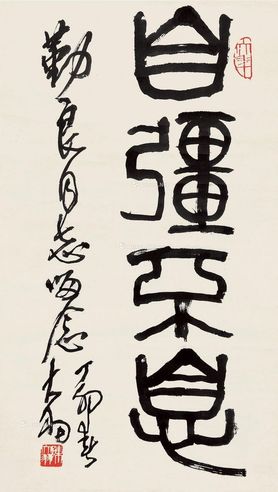 自彊不息
勤良同志留念
丁卯春
大羽